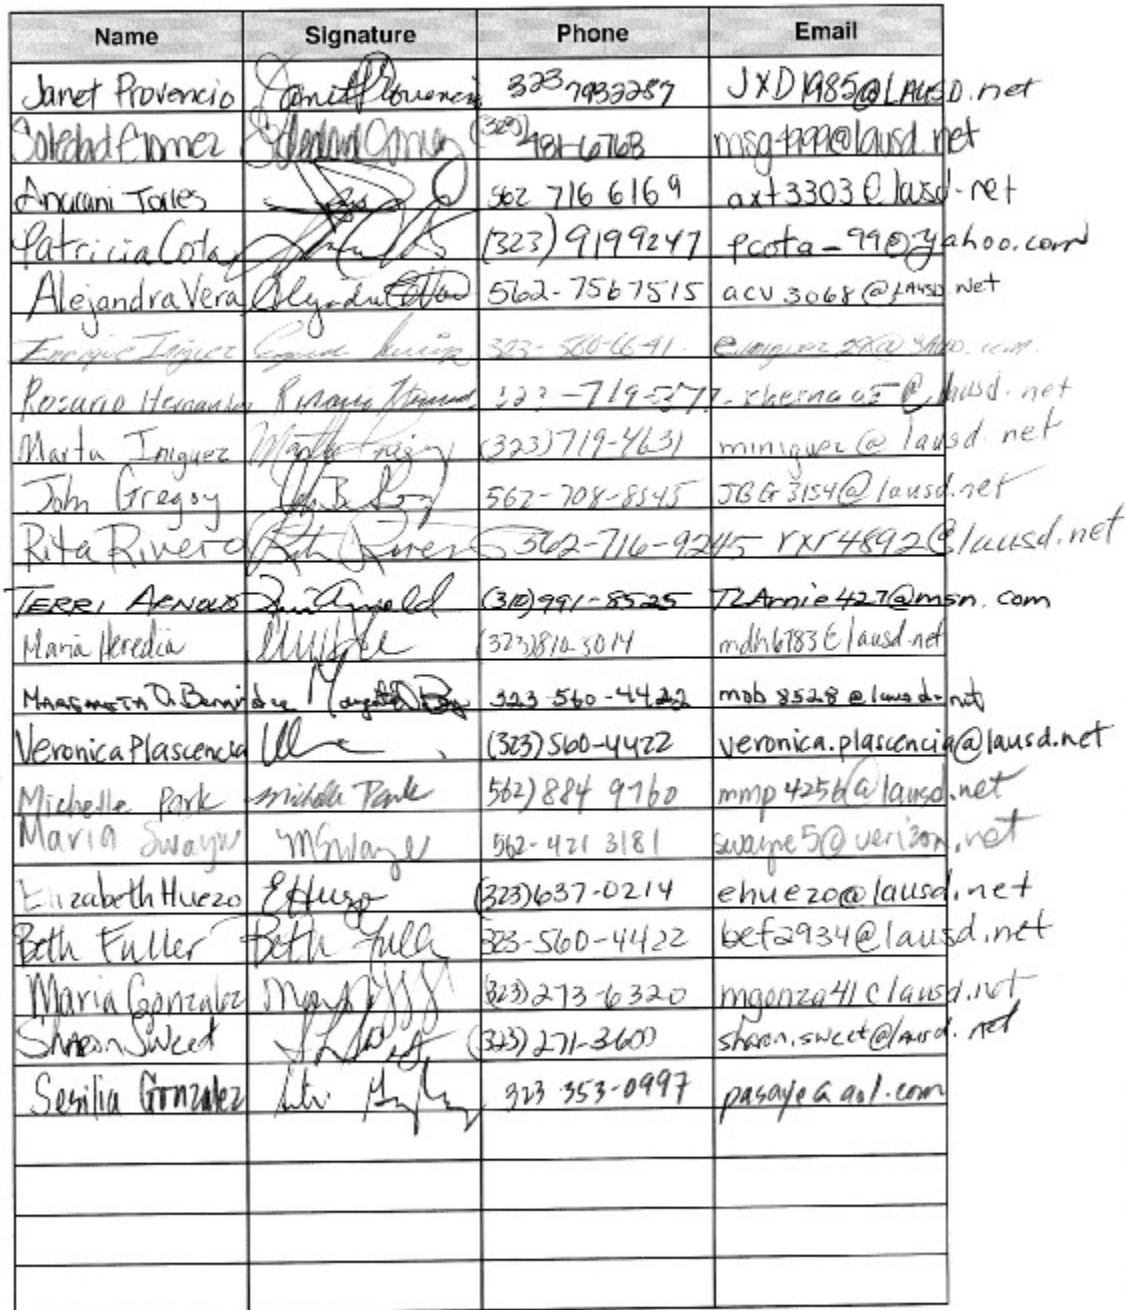 Name Signature Phone Email
Janet Provencio Janet Provencio 323 7933287 JXD1985@LAUSD.net
Soledad Gomez Soledad Gomez (323) 481-6768 @lausd.net
Anacani Torres 562 716 6169 axt3303@lausd.net
Patricia Cota (323) 9199247 pcota_99@yahoo.com
Alejandra Vera 562-7567515 acv3068@LAUSD.net
Enrique Iniguez 323-560-6641
Rosario Hernandez Rosario
Marta Iniguez (323)719-4631 miniguez@lausd.net
John Gregory 562-708-8545 JBG3154@lausd.net
Rita Rivero Rita Rivero 562-716-9245 rxr4892@lausd.net
TERRI ARNOLD Terri Arnold (310)991-8525 TLArnie427@msn.com
Maria Heredia (323)810-3014 mdh6783@lausd.net
323-560-4422 mob8528@lausd.net
Veronica Plascencia (323)560-4422 veronica.plascencia@lausd.net
Michelle Park Michelle Park 562)884 9760 mmp4256@lausd.net
Maria Swayne MSwayne 562-421 3181 swayne5@verizon.net
Elizabeth Huezo EHuezo (323)637-0214 ehuezo@lausd.net
Beth Fuller Beth Fuller 323-560-4422 bef2934@lausd.net
Maria Gonzalez (323)273-6320 mgonza41@lausd.net
Sharon Sweet (323)271-3600 sharon.sweet@lausd.net
Sesilia Gonzalez 323 353-0997 pasaye@aol.com